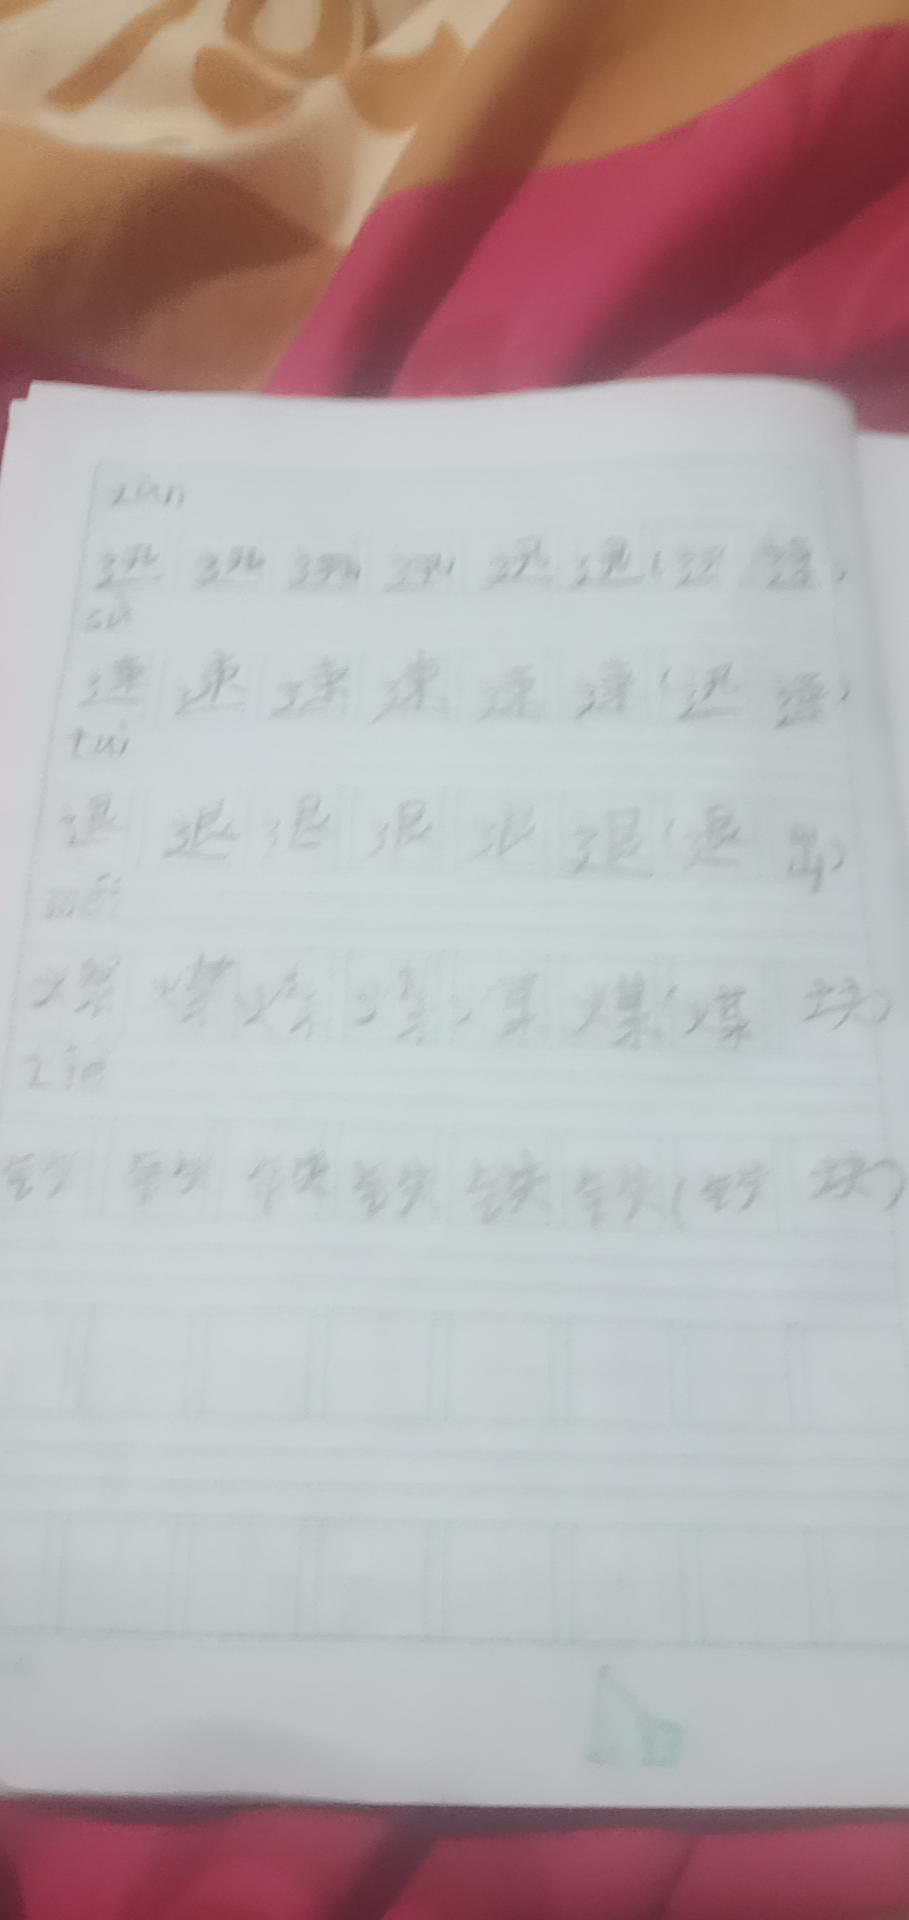 xùn
迅 迅 迅 迅 迅 迅 (迅 速)
sù
速 速 速 速 速 速 (迅 速)
tuì
退 退 退 退 退 退 (退 出)
méi
煤 煤 煤 煤 煤 煤 (煤 块)
铁 铁 铁 铁 铁 铁 (铁 块)